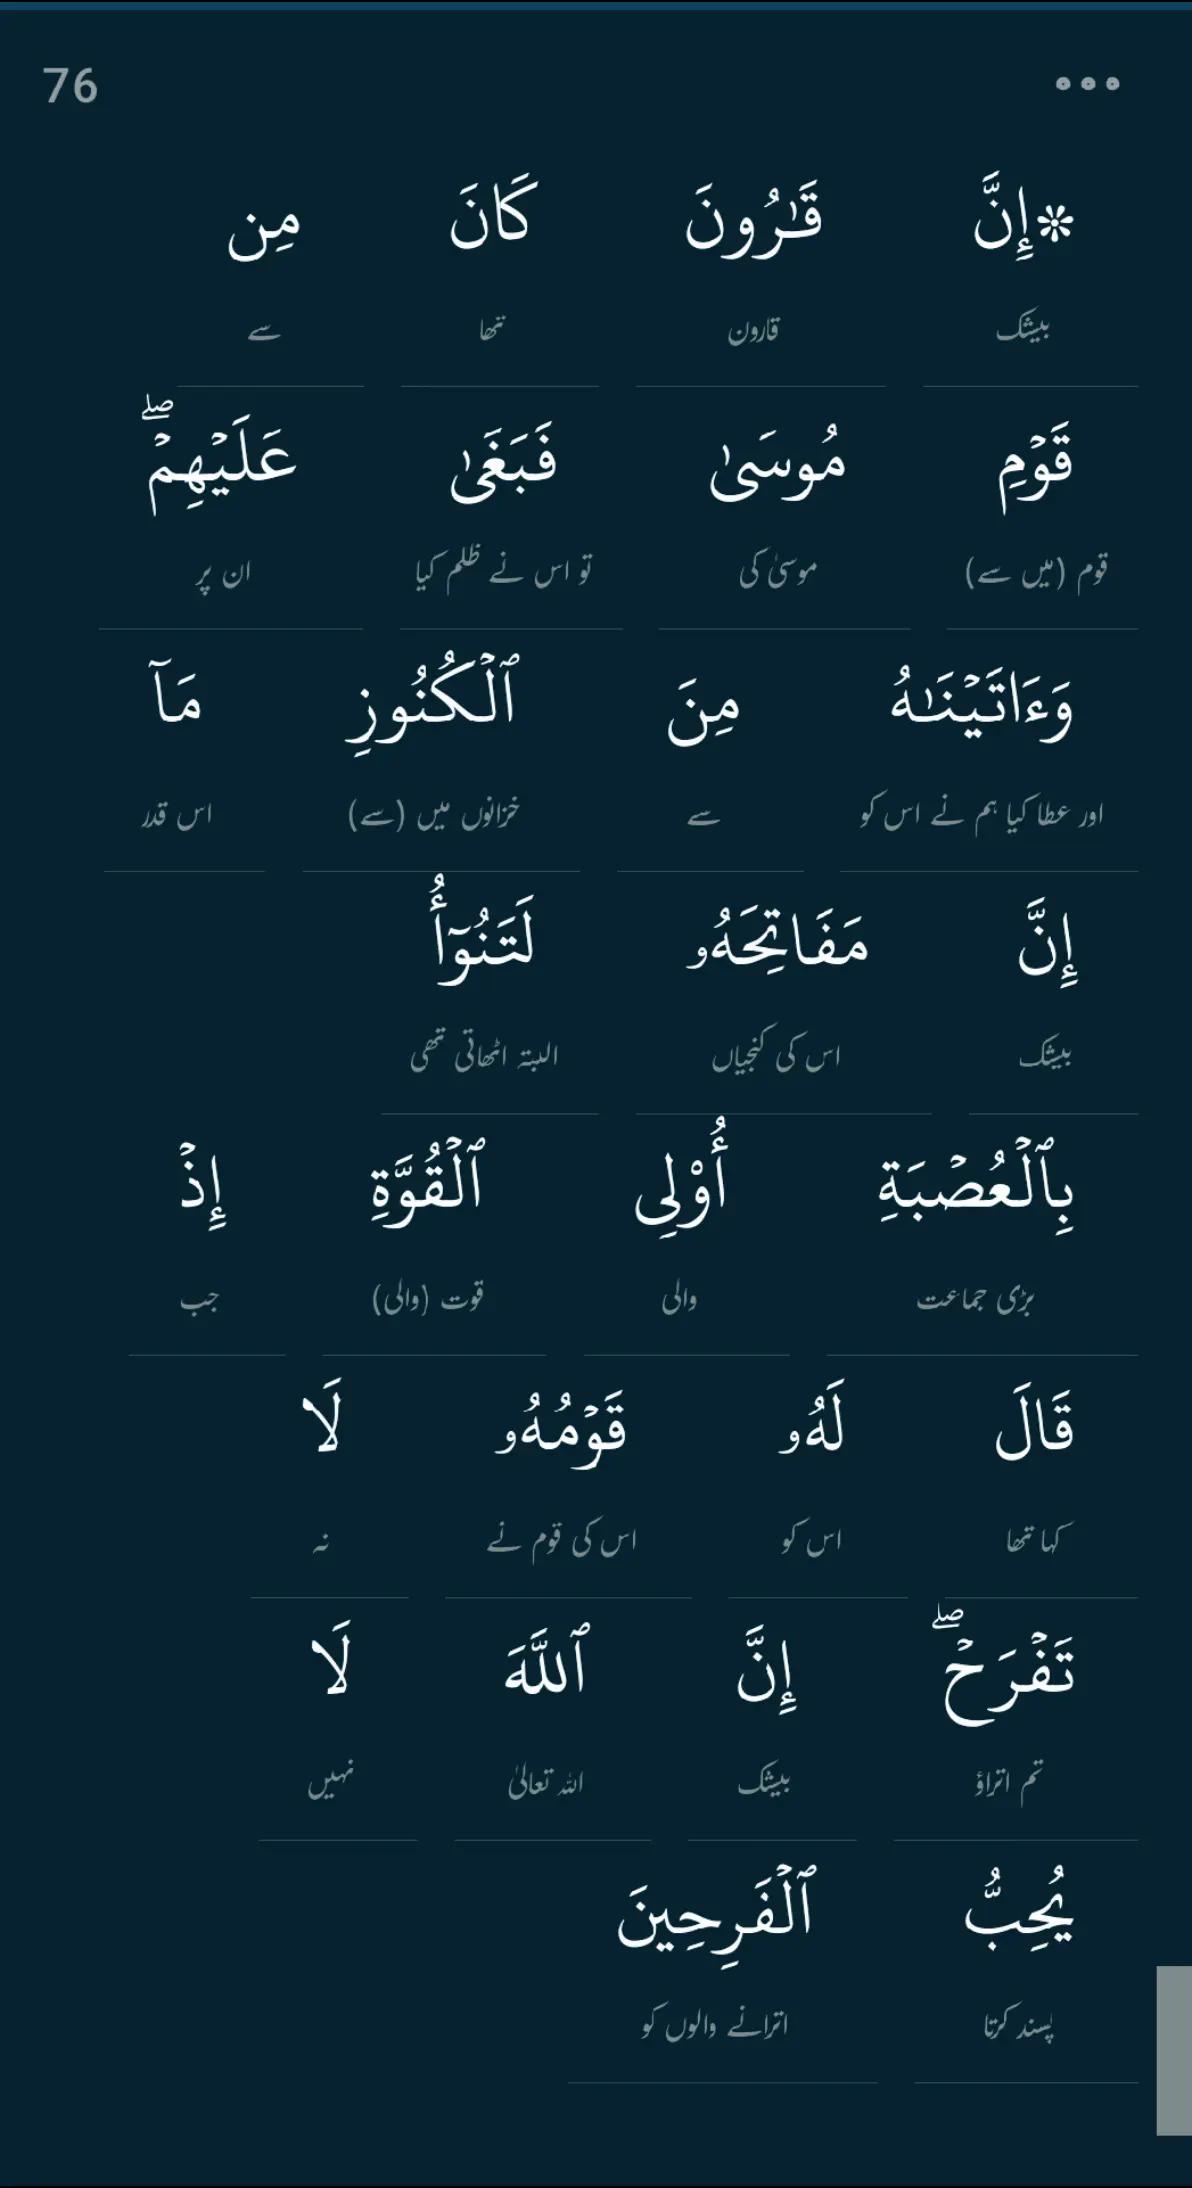 76
۞إِنَّ قَـٰرُونَ كَانَ مِن
بیشک قارون تھا سے
قَوۡمِ مُوسَىٰ فَبَغَىٰ عَلَيۡهِمۡۖ
قوم (میں سے) موسیٰ کی تو اس نے ظلم کیا ان پر
وَءَاتَيۡنَـٰهُ مِنَ ٱلۡكُنُوزِ مَآ
اور عطا کیا ہم نے اس کو سے خزانوں میں (سے) اس قدر
إِنَّ مَفَاتِحَهُۥ لَتَنُوٓأُ
بیشک اس کی کنجیاں البتہ اٹھاتی تھی
بِٱلۡعُصۡبَةِ أُوْلِي ٱلۡقُوَّةِ إِذۡ
بڑی جماعت والی قوت (والی) جب
قَالَ لَهُۥ قَوۡمُهُۥ لَا
کہا تھا اس کو اس کی قوم نے نہ
تَفۡرَحۡۖ إِنَّ ٱللَّهَ لَا
تم اتراؤ بیشک اللہ تعالیٰ نہیں
يُحِبُّ ٱلۡفَرِحِينَ
پسند کرتا اترانے والوں کو